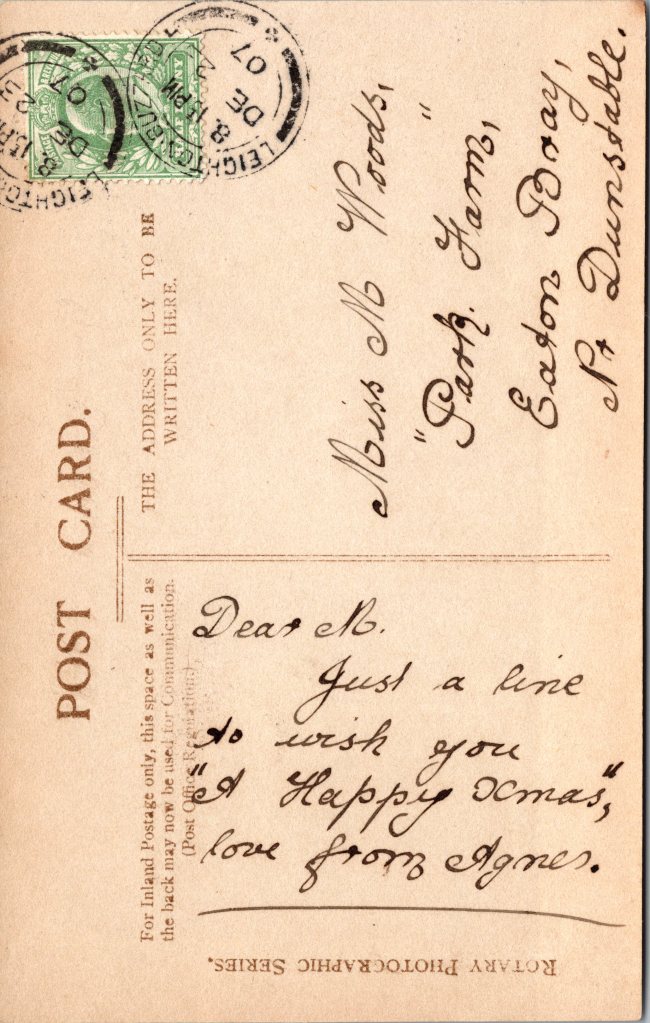 POST CARD.
For Inland Postage only, this space as well as
the back may now be used for Communication.
(Post Office Regulation.)
THE ADDRESS ONLY TO BE
WRITTEN HERE.
Dear M.
Just a line
to wish you
"A Happy Xmas",
love from Agnes.
ROTARY PHOTOGRAPHIC SERIES.
Miss M Woods,
"Park Farm,"
Eaton Bray,
Nr Dunstable.
LEIGHTON BUZZARD
8.15 PM
DE 2
07
LEIGHTON
8.15 AM
DE 23
07